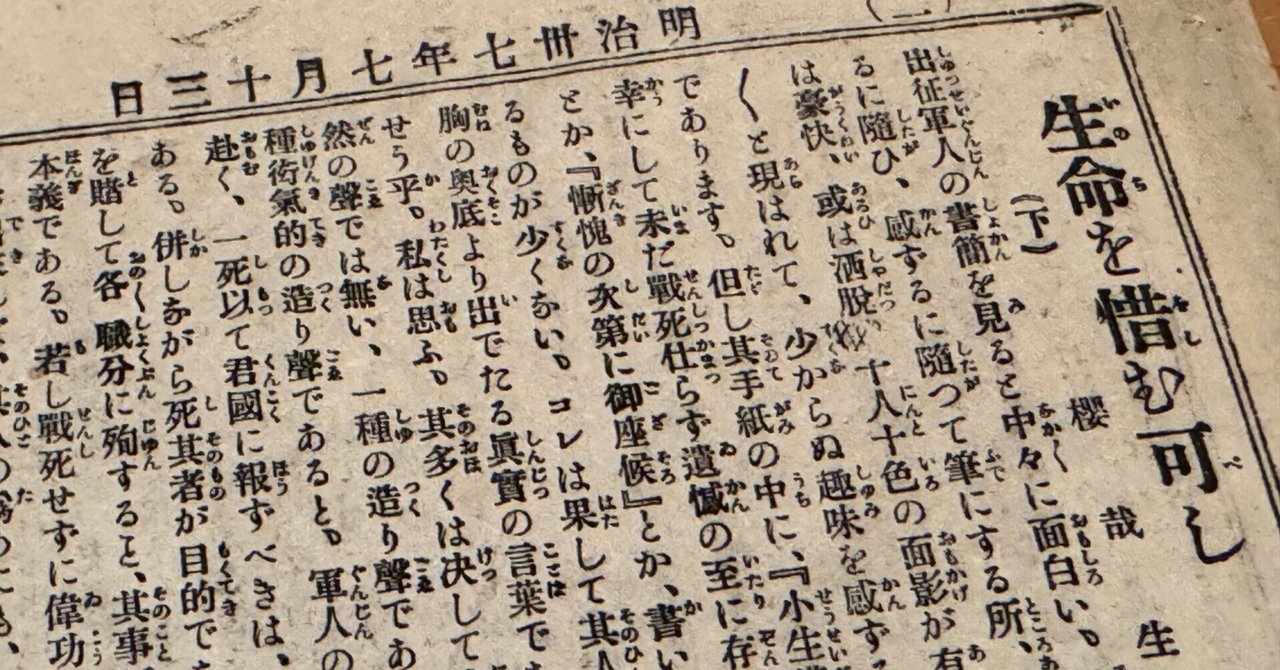 明治卅七年七月十三日
生命を惜む可し
(下)
櫻哉生
出征軍人の書簡を見ると中々に面白い。
るに隨ひ、感ずるに隨つて筆にする所、
は豪快、或は洒脱、十人十色の面影が有
〱と現はれて、少からぬ趣味を感ず
であります。但し其手紙の中に、『小生
幸にして未だ戰死仕らず遺憾の至に存
とか、『慚愧の次第に御座候』とか、書い
るものが少くない。コレは果して其人
胸の奥底より出でたる眞實の言葉で
せう乎。私は思ふ。其多くは決して
然の聲では無い、一種の造り聲であ
種衒氣的の造り聲であると。軍人の
赴く、一死以て君國に報ずべきは、
ある。併しながら死其者が目的で
を賭して各職分に殉すること、其事
本義である。若し戰死せずに偉功